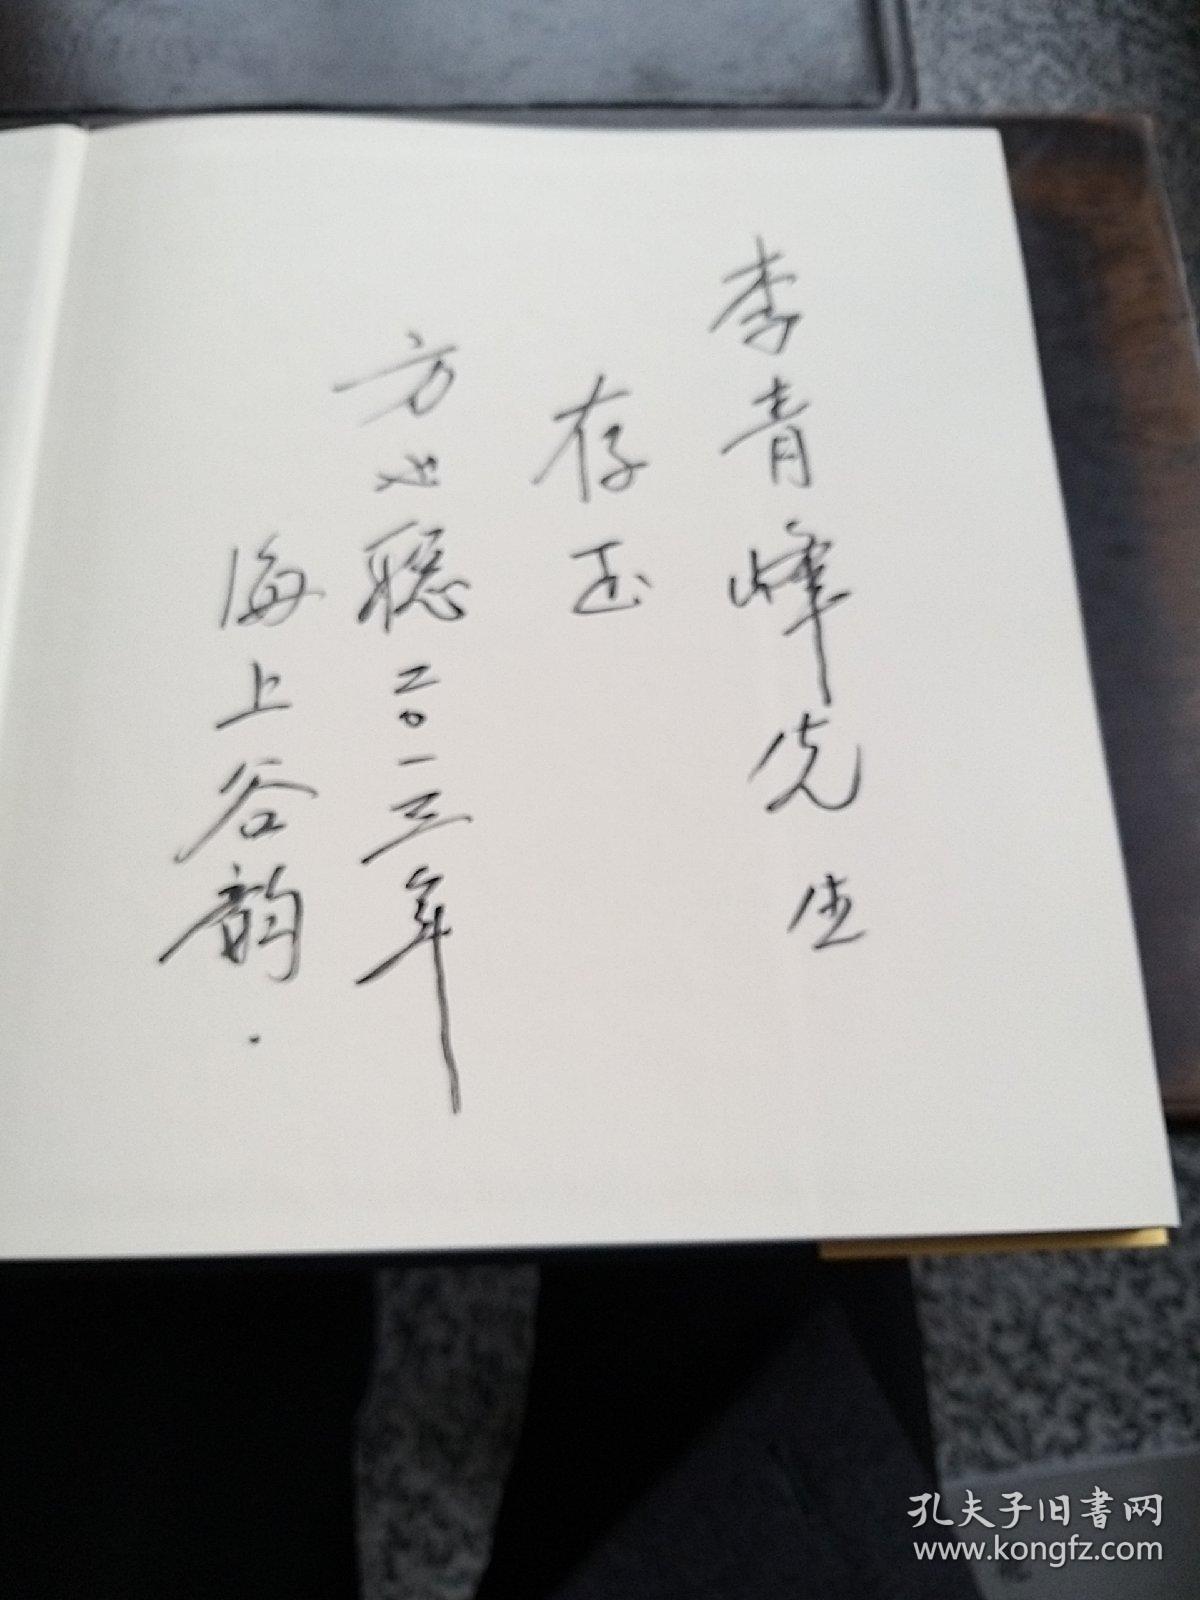 李青峰先生
存正
方世聪二〇一三年
海上谷韵.
孔夫子旧書网
www.kongfz.com